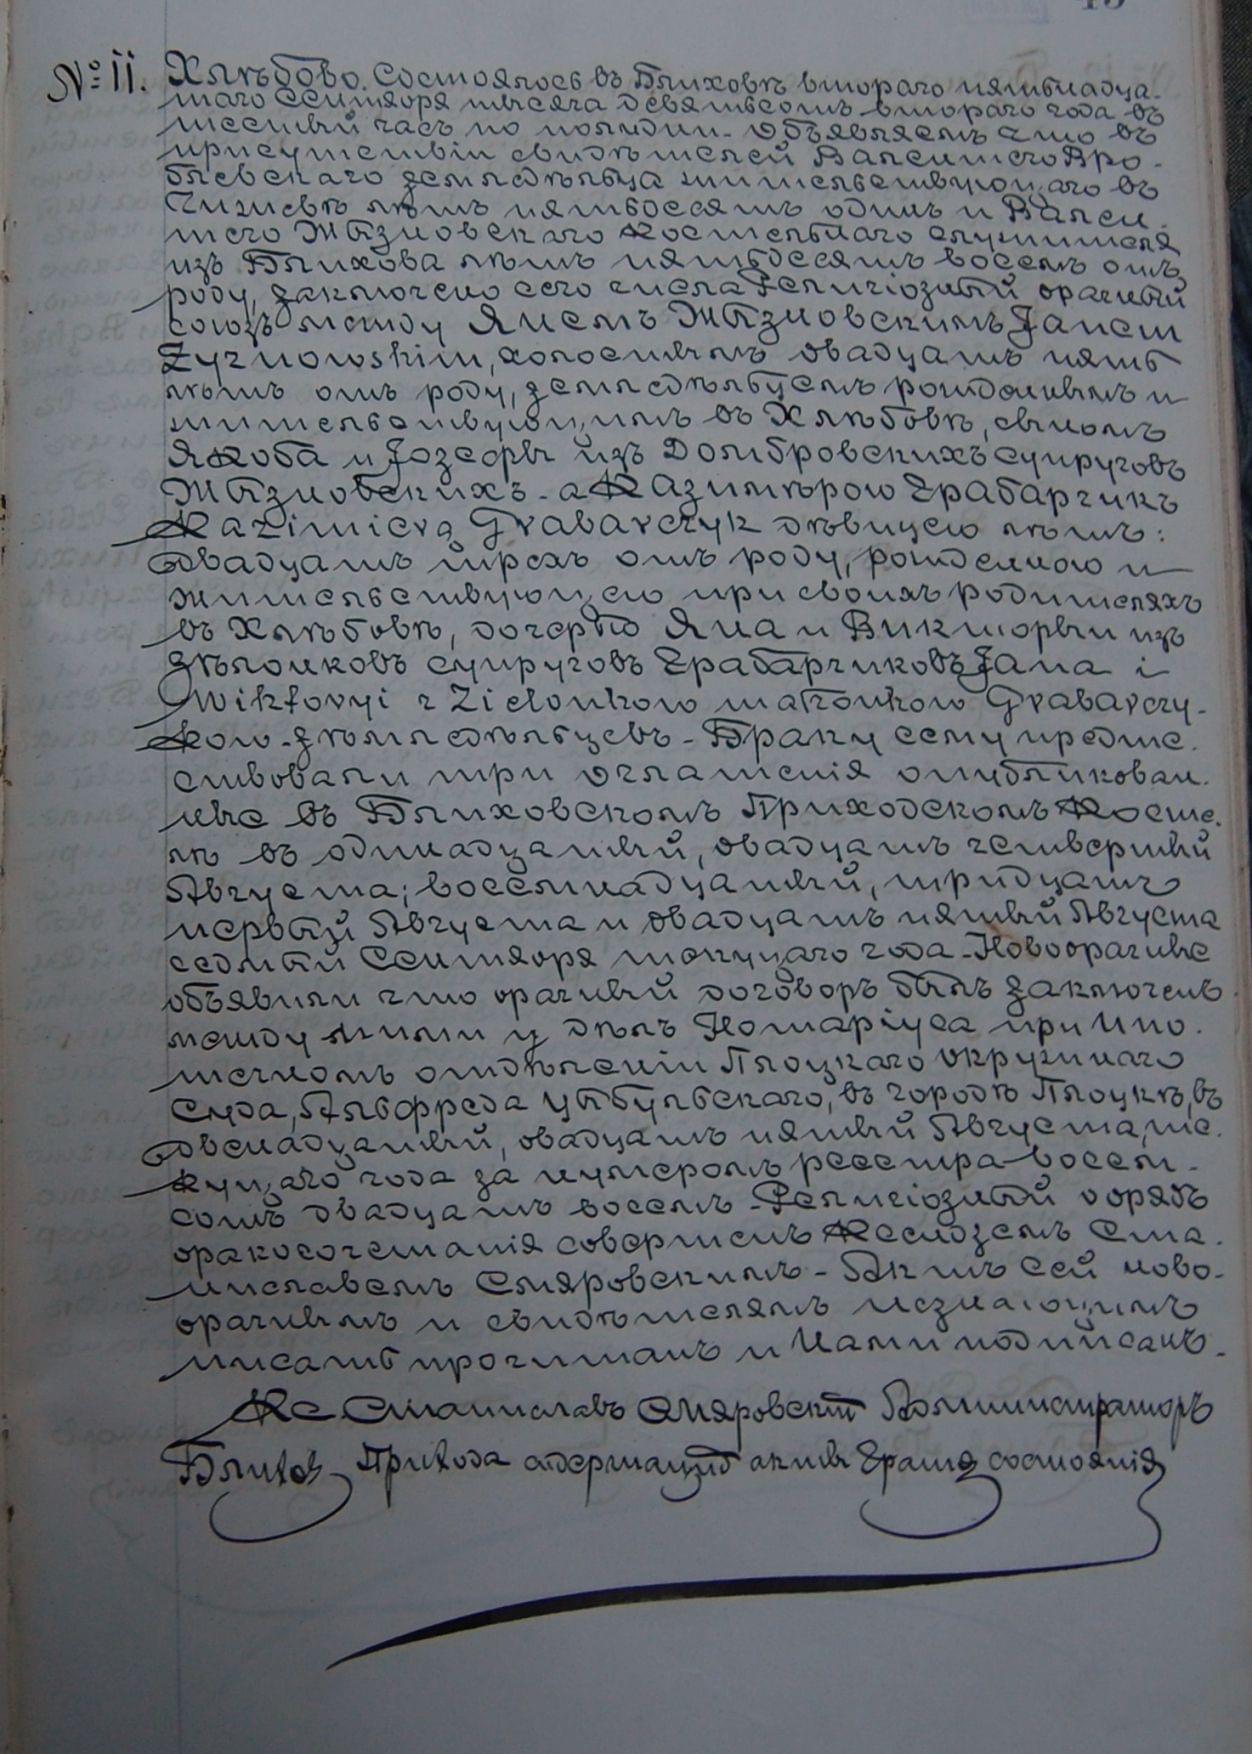 № 11. Хлѣбово. Состоялось въ Блиховѣ втораго пятнадца-
таго Сентября тысяча девятьсотъ втораго года въ
шестый часъ по полудни. Объявляемъ что въ
присутствіи свидѣтелей Валентего Вро-
блевскаго земледѣльца жительствующаго въ
лѣтъ пятьдесятъ одинъ и Вален-
тего Жызновскаго костельнаго служителя
изъ Блихова лѣтъ пятьдесятъ восемъ отъ
роду, заключено сего числа Религіозный брачный
союзъ между Янемъ Жызновскимъ Janem
Żyznowskim, холостымъ двадцать пять
лѣтъ отъ роду, земледѣльцемъ рожденнымъ и
жительствующимъ въ Хлѣбовѣ, сыномъ
Якоба и Іозефы изъ Домбровскихъ супруговъ
Жызновскихъ - а Казимѣрою Грабарчикъ
Kazimierą Grabarczyk дѣвицею лѣтъ:
двадцать трехъ отъ роду, рожденною и
жительствующею при своихъ родителяхъ
въ Хлѣбовѣ, дочерью Яна и Викторыи изъ
Зѣлонковъ супруговъ Грабарчиковъ Jana i
Wiktoryi z Zielonków małżonków Grabarczy-
ków - земледѣльцевъ - Браку сему предше-
ствовали три оглашенія опубликован-
ные въ Блиховскомъ Приходскомъ Косте-
лѣ въ одинадцатый, двадцать четвертый
Августа; восемнадцатый, тридцать
первый Августа и двадцать пятый Августа
седмый Сентября текущаго года - Новобрачные
объявили что брачный договоръ былъ заключенъ
между ними у дѣлъ Нотаріуса при Ипо-
течномъ отдѣленіи Плоцкаго Окружнаго
Суда, Альфреда Цыбульскаго, въ городѣ Плоцкѣ, въ
двенадцатый, двадцать пятый Августа, те-
кущаго года за нумеромъ реестра восем-
сотъ двадцать восемъ - Религіозный обрядъ
бракосочетанія совершенъ Ксендземъ Ста-
ниславемъ Смяровскимъ - Актъ сей ново-
брачнымъ и свидѣтелямъ незнающимъ
писать прочитанъ и Нами подписанъ.
Кс. Станиславъ Смяровскій Администраторъ
Блихов. Прихода содержащій акты Гражд. состоянія